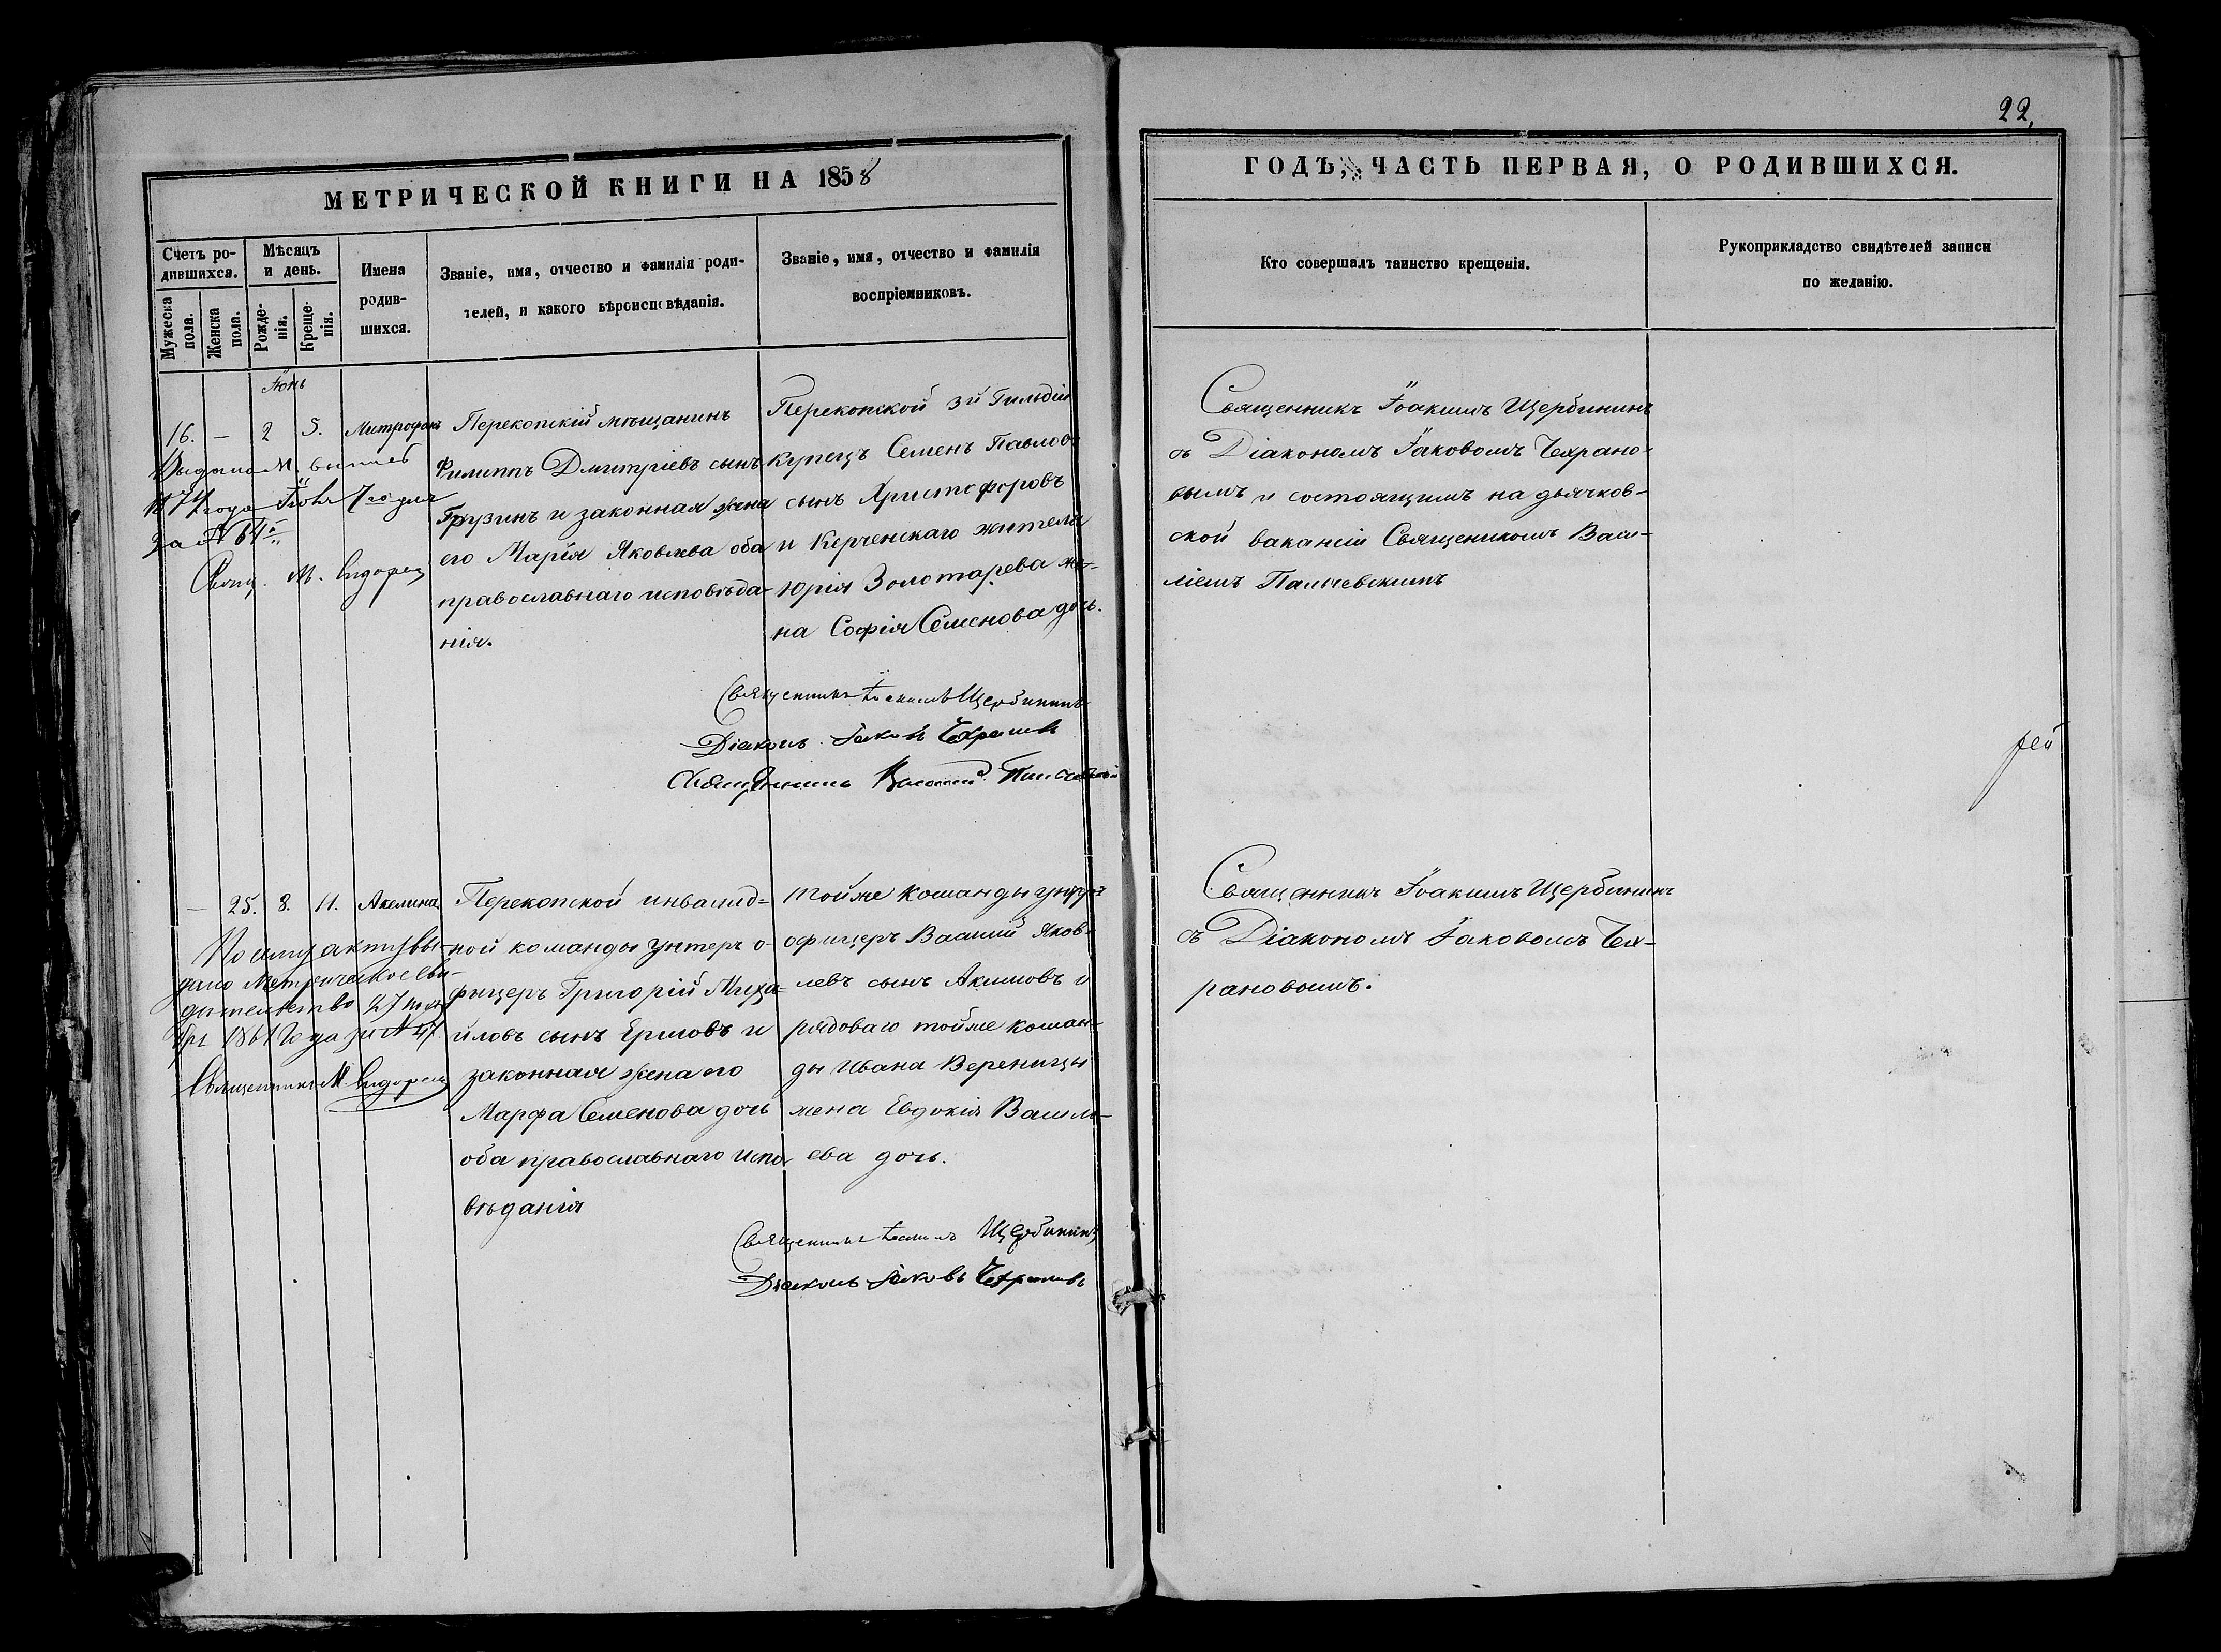 22,
МЕТРИЧЕСКОЙ КНИГИ НА 1858
ГОДЪ, ЧАСТЬ ПЕРВАЯ, О РОДИВШИХСЯ.
Счетъ ро-
дившихся.
Мужеска пола.
Женска пола.
Мѣсяцъ
и день.
Рожде-
нія.
Креще-
нія.
Имена
родив-
шихся.
Званіе, имя, отчество и фамилія роди-
телей, и какого вѣроисповѣданія.
Званіе, имя, отчество и фамилія
воспріемниковъ.
Кто совершалъ таинство крещенія.
Рукоприкладство свидѣтелей записи
по желанію.
Іюнь
16. — 2 5. Митрофанъ
Выдана М.
1874 года Іюня 7го дня
за № 64
Свящ. М. Сидоренко
Перекопскій мѣщанинъ
Филиппъ Дмитріевъ сынъ
Грузинъ и законная жена
его Марія Яковлева оба
православнаго исповѣда-
нія.
Перекопской 3й Гильдіи
купецъ Семенъ Павловъ
сынъ Христофоровъ
и Керченскаго жителя
Юрія Золотарева же-
на Софія Семенова дочь.
Священникъ Іоакимъ Щербининъ
Діаконъ Іаковъ Чехрановъ
Священникъ Василій
Священникъ Іоакимъ Щербининъ
съ Діакономъ Іаковомъ Чехрано-
вымъ и состоящимъ на дьячков-
ской вакансіи Священикомъ Васи-
ліемъ Пальчевскимъ
рей
— 25. 8. 11. Акелина.
По сему акту вы-
дано Метрическое сви-
дѣтельство 27
1861 Года за № 47.
Священникъ М. Сидоренко
Перекопской инвалид-
ной команды унтеръ о-
фицеръ Григорій Миха-
йловъ сынъ Ермовъ и
законная жена его
Марфа Семенова дочь
оба православнаго испо-
вѣданія
тойже команды унтеръ
офицеръ Василій Яков-
левъ сынъ Акимовъ и
рядоваго тойже коман-
ды Ивана Вереницы
жена Евдокія Василь-
ева дочь.
Священникъ Іоакимъ Щербининъ
Діаконъ Іаковъ Чехрановъ
Священникъ Іоакимъ Щербининъ
съ Діакономъ Іаковомъ Чех-
рановымъ.